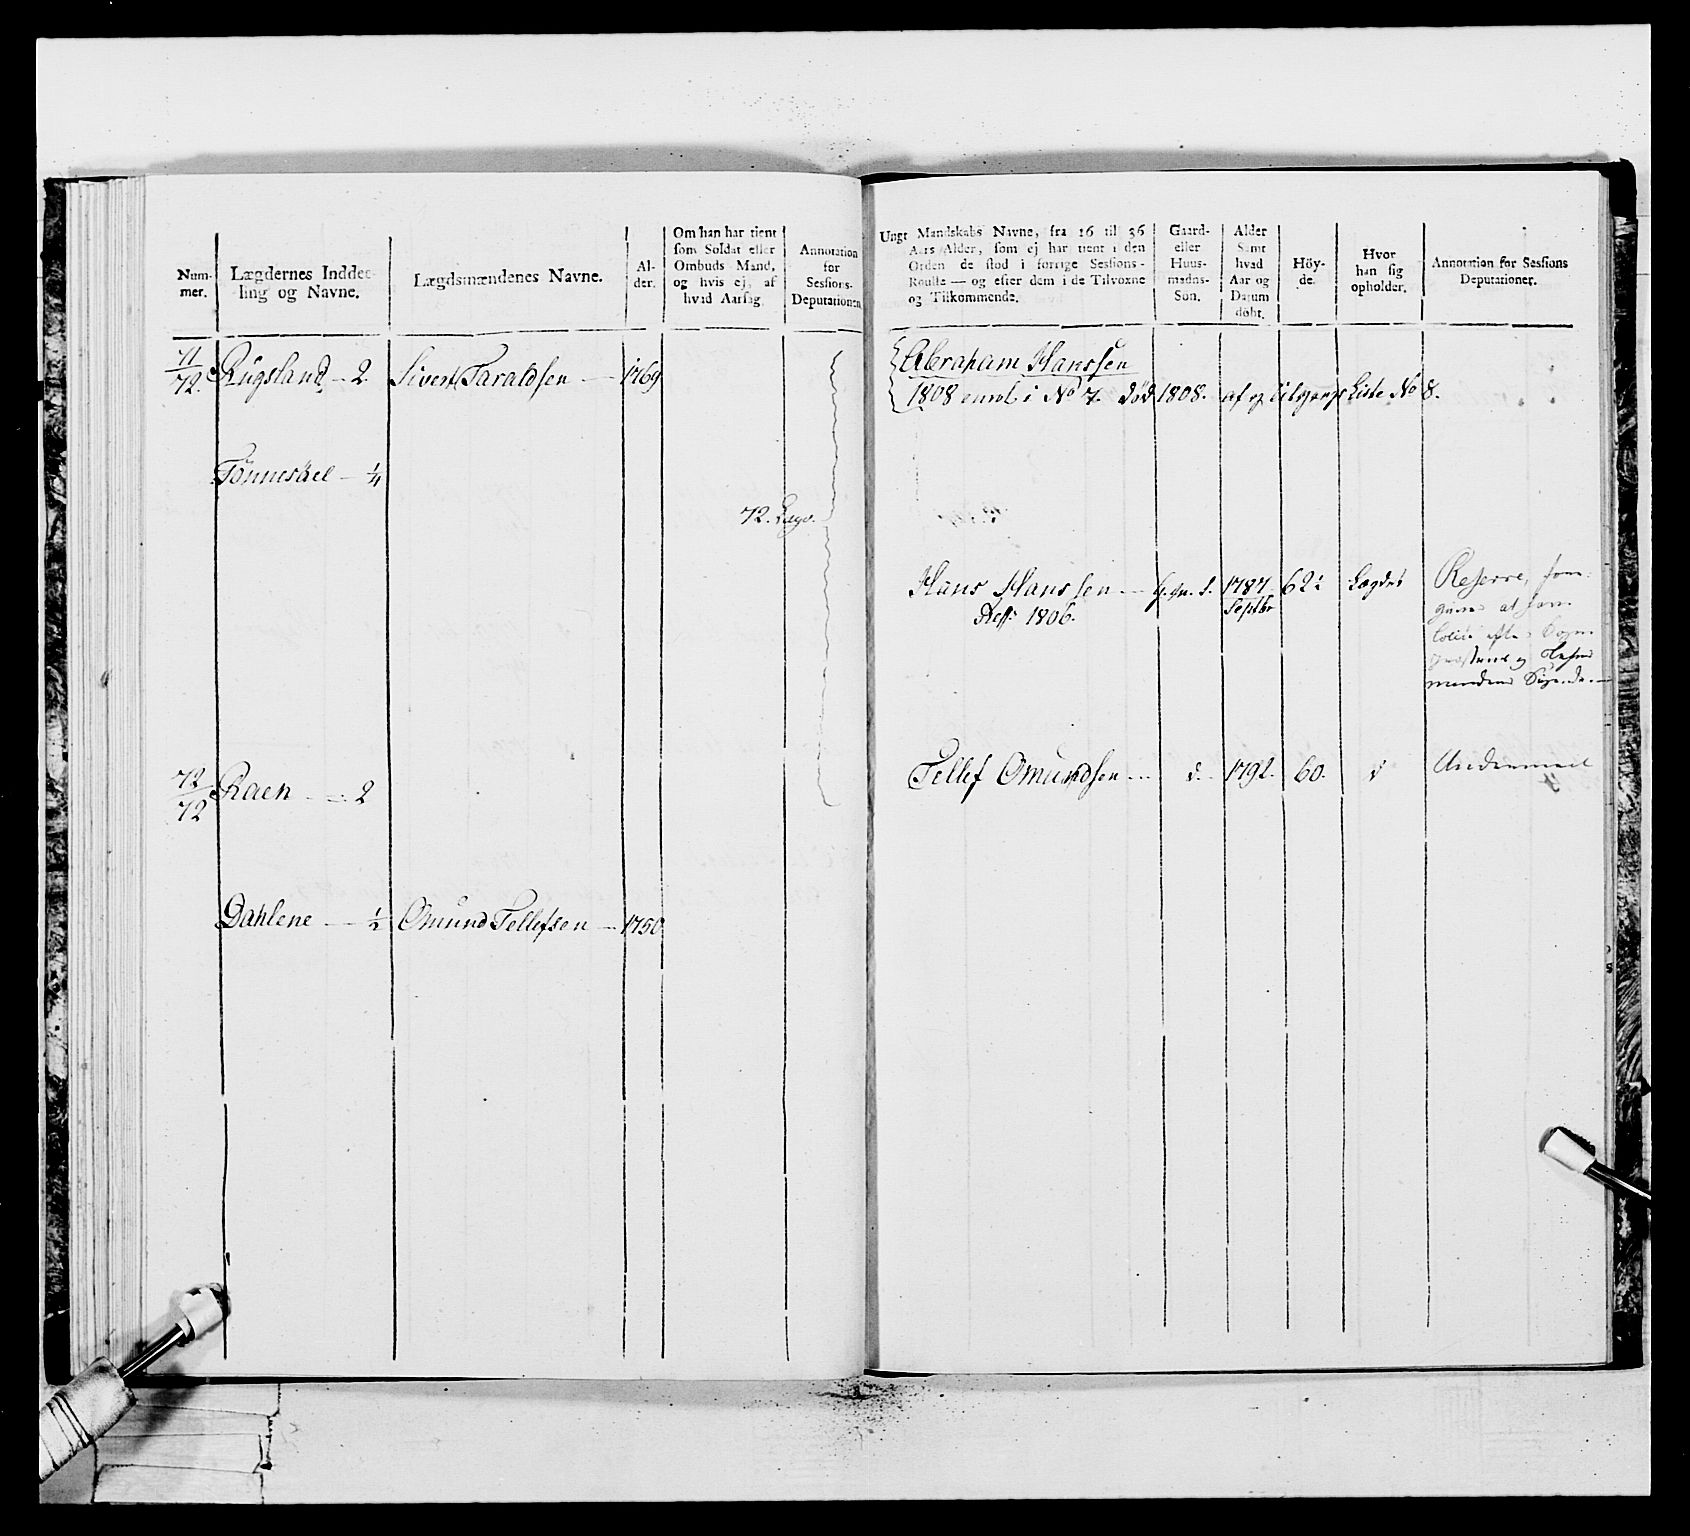 Num-
mer.
Lægdernes Inddee-
ling og Navne.
Lægdsmændenes Navne.
Al-
der.
Om han har tient
som Soldat eller
Ombuds Mand,
og hvis ej, af
hvad Aarsag.
Annotation
for
Sessions-
Deputationen
71/72. Rugsland - 2. Sivert Taraldsen — 1769
Tönnesöel — 1/4
72. Lægd.
72/72 Raen - 2
Dahlene — 1/2 Omund Tellefsen — 1750
Ungt Mandskabs Navne, fra 16 til 36
Aars Alder, som ej har tient i den
Orden de stod i forrige Sessions-
Roulle — og efter dem i de Tilvoxne
og Tilkommende.
Gaard-
eller
Huus-
mands-
Søn.
Alder
Samt
hvad
Aar og
Datum
döbt.
Höy-
de.
Hvor
han sig
opholder.
Annotation for Sessions
Deputationer.
Abraham Hanssen
1808 enrol. i No 7. död 1808. af og tilgangs Liste No 8.
Hans Hanssen — 1787. 62½ Lægdet Reserve,
1806. Septbr
Tellef Omundsen — d. 1792. 60. d